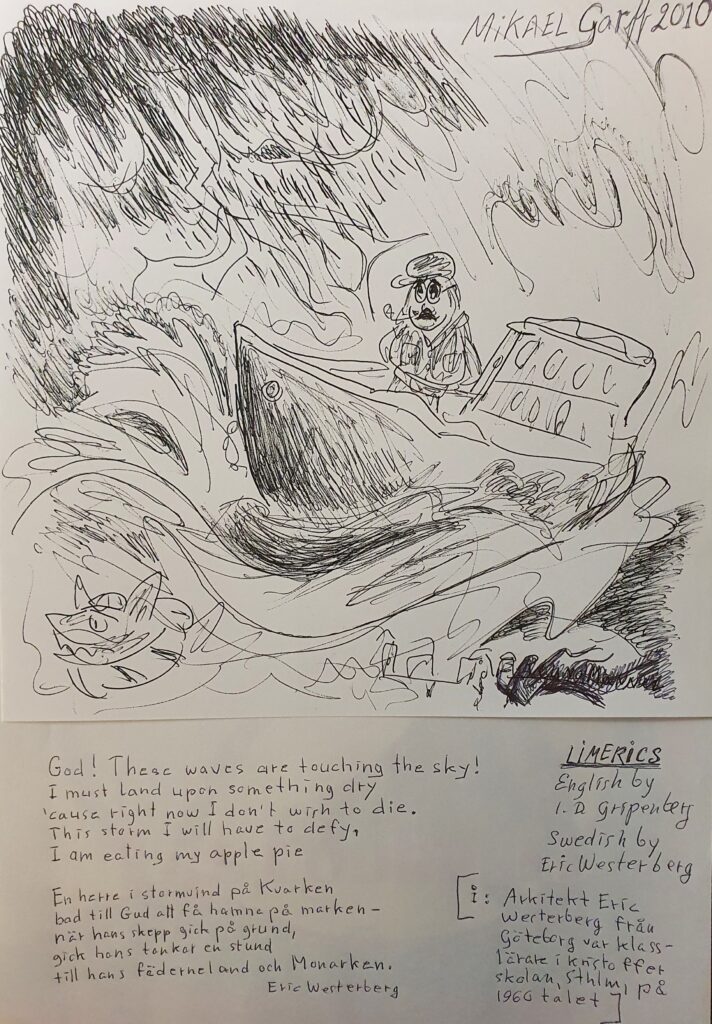 MiKAEL Garff 2010
God! These waves are touching the sky!
I must land upon something dry
'cause right now I don't wish to die.
This storm I will have to defy,
I am eating my apple pie
En herre i stormvind på Kvarken
bad till Gud att få hamna på marken –
när hans skepp gick på grund,
gick hans tankar en stund
till hans fäderneland och Monarken.
Eric Westerberg
LiMERiCS
English by
I. D. Gripenberg
Swedish by
Eric Westerberg
[i: Arkitekt Eric
Westerberg från
Göteborg var klass-
lärare i kristoffer
skolan, Sthlm, på
1960 talet]